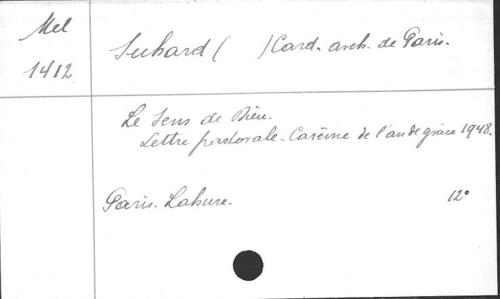 Mel
1412
Suhard ( ) Card. arch. de Paris.
Le Sens de Dieu.
Lettre pastorale. Carême de l'an de grâce 1948.
Paris. Lahure. 12°